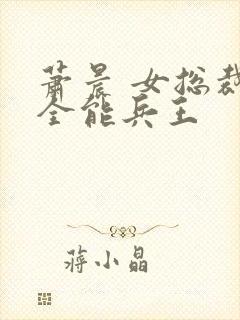 萧晨 女总裁
全能兵王
蒋小晶